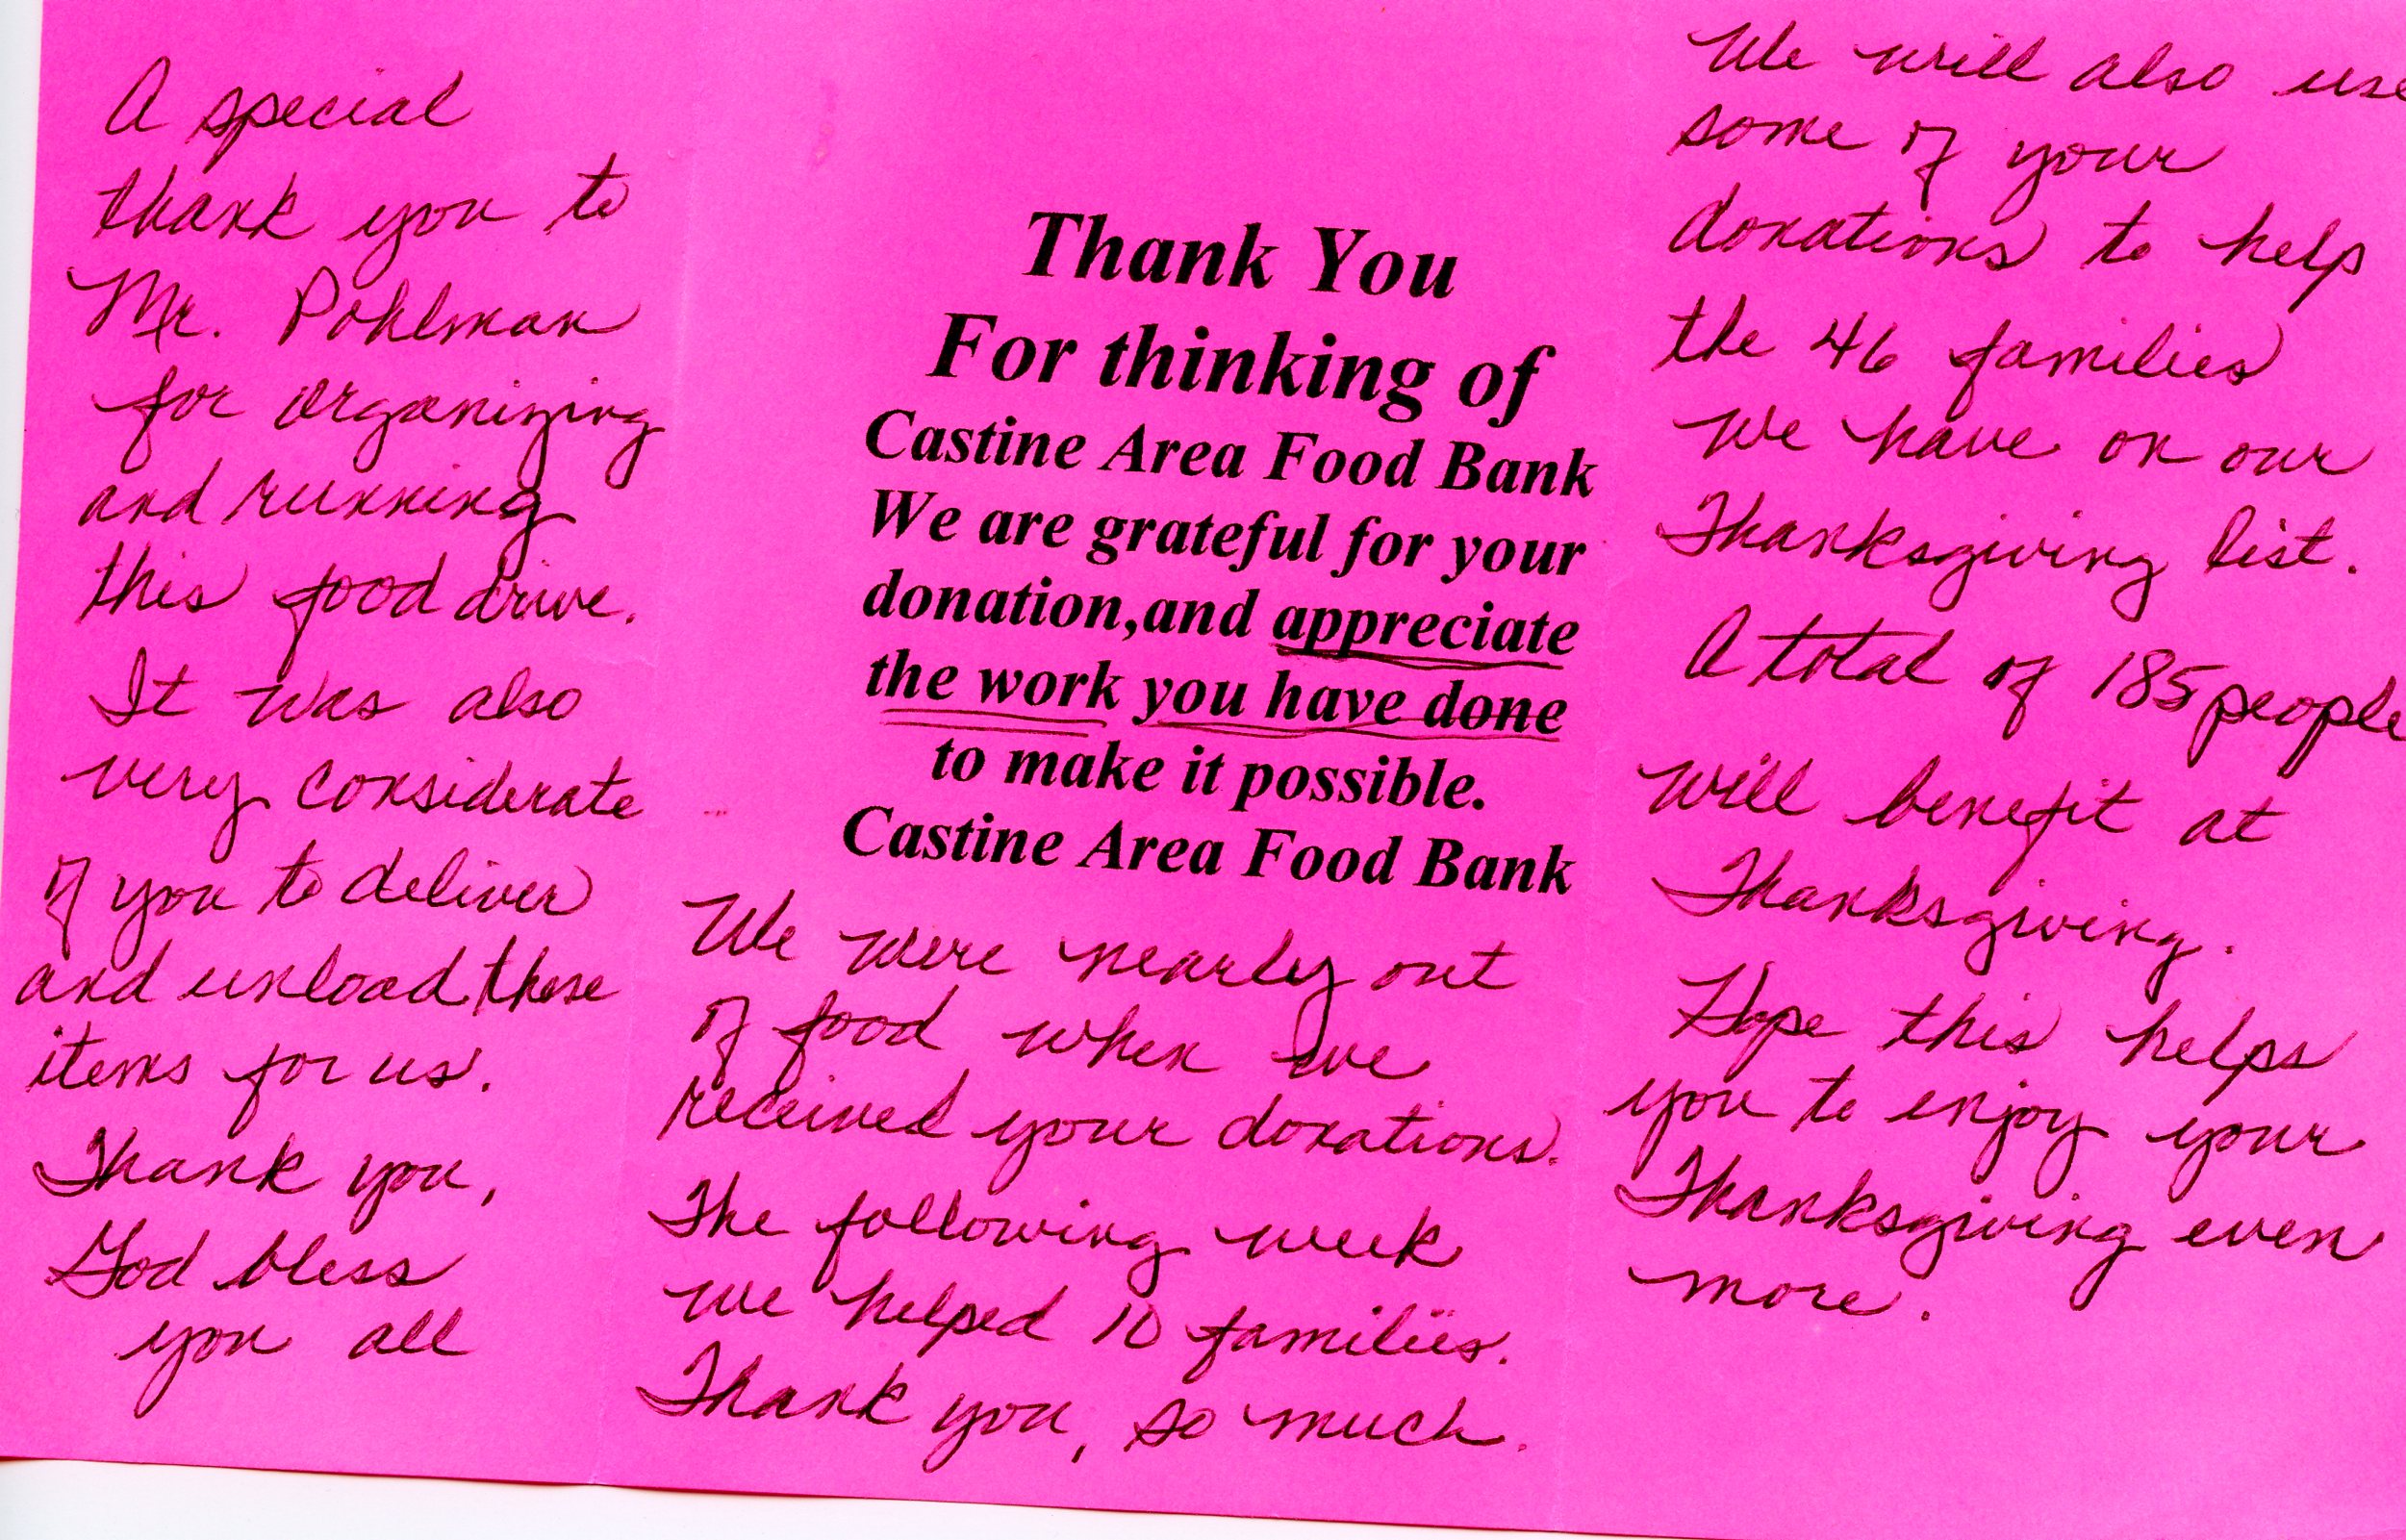 A special
thank you to
Mr. Pohlman
for organizing
and running
this food drive.
It was also
very considerate
of you to deliver
and unload these
items for us.
Thank you,
God bless
you all
Thank You
For thinking of
Castine Area Food Bank
We are grateful for your
donation,and appreciate
the work you have done
to make it possible.
Castine Area Food Bank
We were nearly out
of food when we
received your donations.
The following week
we helped 10 families.
Thank you, so much.
We will also use
some of your
donations to help
the 46 families
we have on our
Thanksgiving list.
A total of 185 people
will benefit at
Thanksgiving.
Hope this helps
you to enjoy your
Thanksgiving even
more.